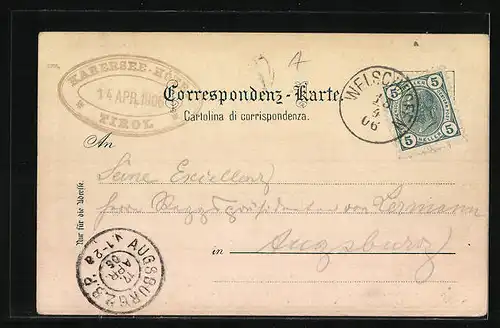 KARERSEE-HOTEL
14 APR. 1906
TIROL
Correspondenz-Karte
Cartolina di corrispondenza.
WELSCHNOFEN
15
4
06
5 5
5 5
HELLER HELLER
An
Seine Exzellenz
Herrn von Lermann
in Augsburg
Nur für die Adresse.
AUGSBURG 2 B.P.
17
APR
06
V. 1-2a